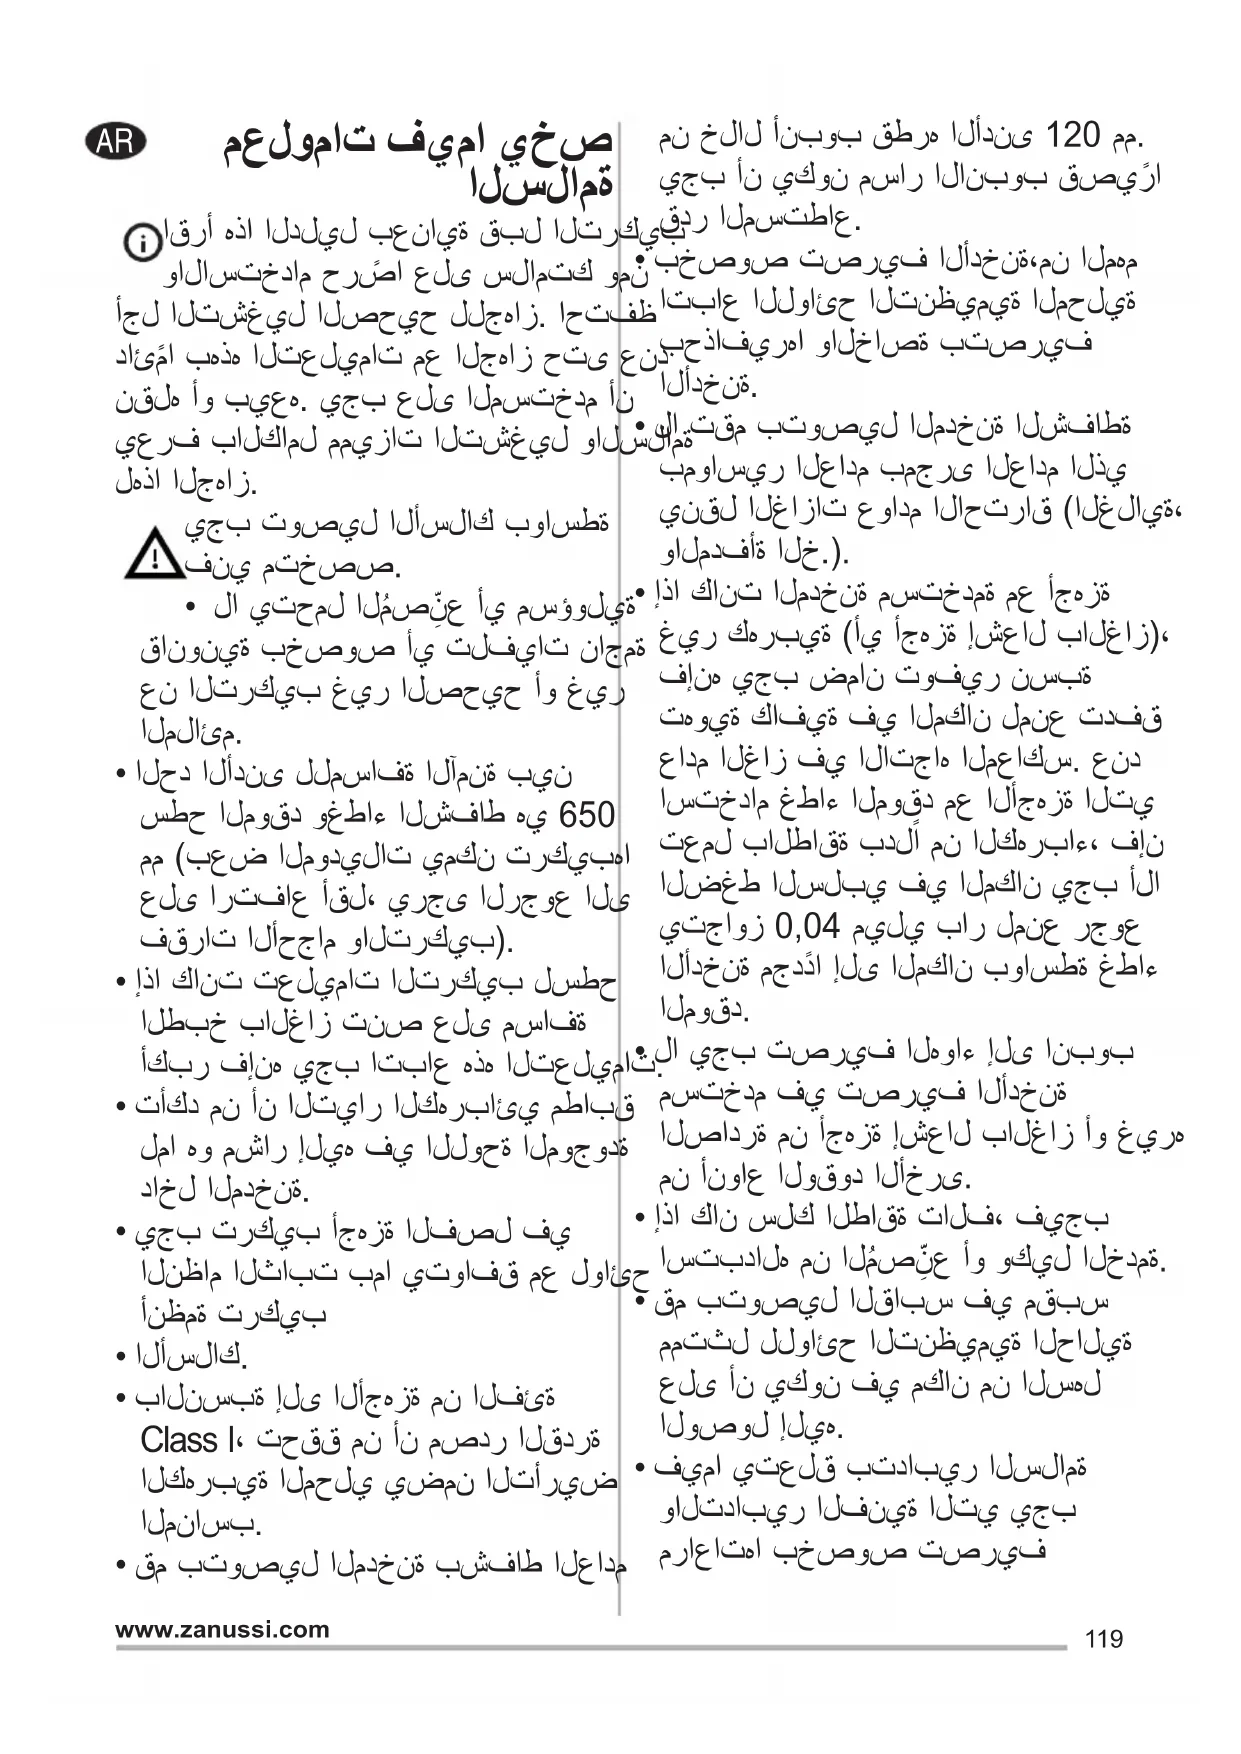 AR
معلومات فيما يخص
السلامة
اقرأ هذا الدليل بعناية قبل التركيب
والاستخدام حرصًا على سلامتك ومن
أجل التشغيل الصحيح للجهاز. احتفظ
دائمًا بهذه التعليمات مع الجهاز حتى عند
نقله أو بيعه. يجب على المستخدم أن
يعرف بالكامل مميزات التشغيل والسلامة
لهذا الجهاز.
يجب توصيل الأسلاك بواسطة
فني متخصص.
• لا يتحمل المُصنِّع أي مسؤولية
قانونية بخصوص أي تلفيات ناجمة
عن التركيب غير الصحيح أو غير
الملائم.
• الحد الأدنى للمسافة الآمنة بين
سطح الموقد وغطاء الشفاط هي 650
مم (بعض الموديلات يمكن تركيبها
على ارتفاع أقل، يرجى الرجوع الى
فقرات الأحجام والتركيب).
• إذا كانت تعليمات التركيب لسطح
الطبخ بالغاز تنص على مسافة
أكبر فإنه يجب اتباع هذه التعليمات.
• تأكد من أن التيار الكهربائي مطابق
لما هو مشار إليه في اللوحة الموجودة
داخل المدخنة.
• يجب تركيب أجهزة الفصل في
النظام الثابت بما يتوافق مع لوائح
أنظمة تركيب
• الأسلاك.
• بالنسبة إلى الأجهزة من الفئة
Class I، تحقق من أن مصدر القدرة
الكهربية المحلي يضمن التأريض
المناسب.
• قم بتوصيل المدخنة بشفاط العادم
من خلال أنبوب قطره الأدنى 120 مم.
يجب أن يكون مسار الانبوب قصيرًا
قدر المستطاع.
• بخصوص تصريف الأدخنة،من المهم
اتباع اللوائح التنظيمية المحلية
بحذافيرها والخاصة بتصريف
الأدخنة.
• لا تقم بتوصيل المدخنة الشفاطة
بمواسير العادم بمجرى العادم الذي
ينقل الغازات عوادم الاحتراق (الغلاية،
والمدفأة الخ.).
• إذا كانت المدخنة مستخدمة مع أجهزة
غير كهربية (أي أجهزة إشعال بالغاز)،
فإنه يجب ضمان توفير نسبة
تهوية كافية في المكان لمنع تدفق
عادم الغاز في الاتجاه المعاكس. عند
استخدام غطاء الموقد مع الأجهزة التي
تعمل بالطاقة بدلًا من الكهرباء، فإن
الضغط السلبي في المكان يجب ألا
يتجاوز 0,04 ميلي بار لمنع رجوع
الأدخنة مجددًا إلى المكان بواسطة غطاء
الموقد.
• لا يجب تصريف الهواء إلى انبوب
مستخدم في تصريف الأدخنة
الصادرة من أجهزة إشعال بالغاز أو غيره
من أنواع الوقود الأخرى.
• إذا كان سلك الطاقة تالف، فيجب
استبداله من المُصنِّع أو وكيل الخدمة.
• قم بتوصيل القابس في مقبس
ممتثل للوائح التنظيمية الحالية
على أن يكون في مكان من السهل
الوصول إليه.
• فيما يتعلق بتدابير السلامة
والتدابير الفنية التي يجب
مراعاتها بخصوص تصريف
www.zanussi.com
119